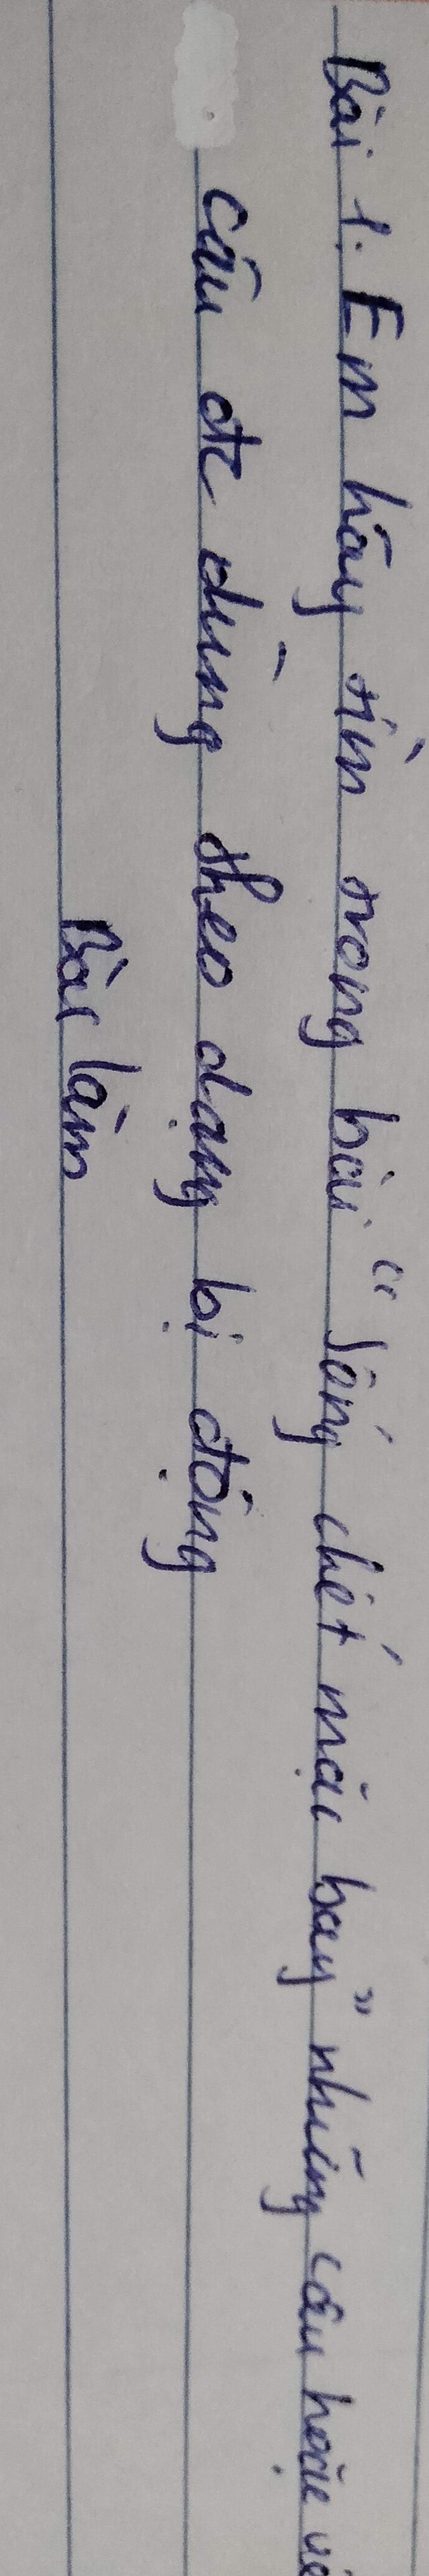 Bài 1. Em hãy tìm trong bài "Sống chết mặc bay" những câu hoặc vế
câu đc dùng theo dạng bị động
Bài làm